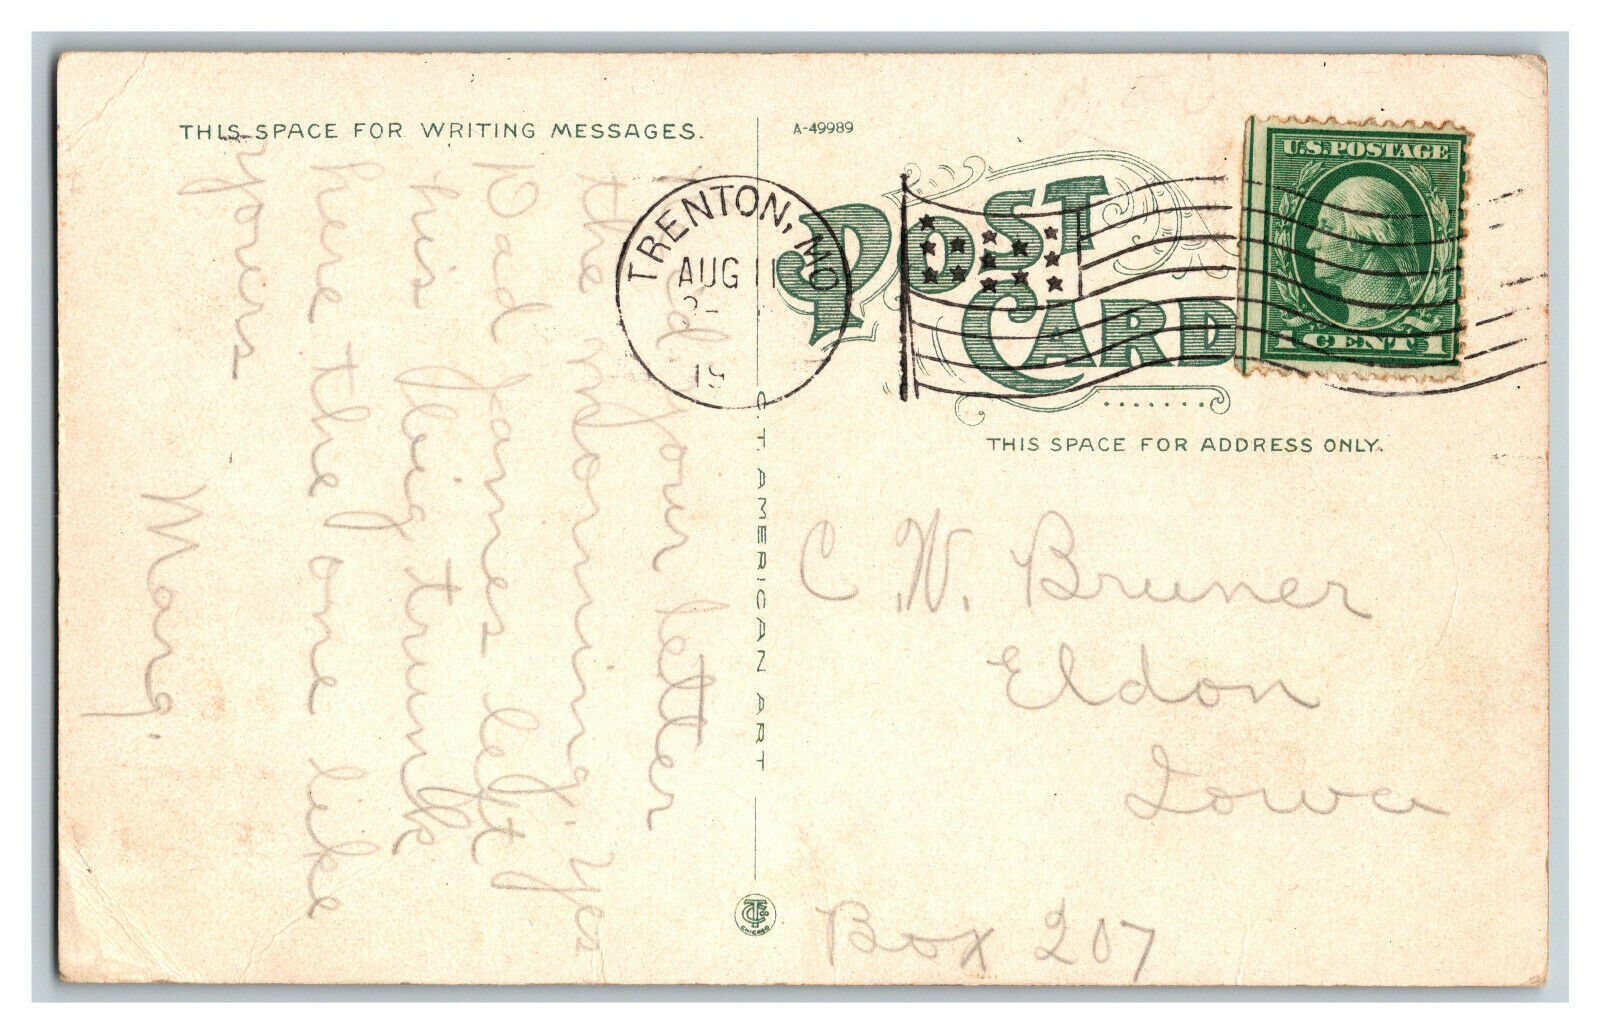 THIS SPACE FOR WRITING MESSAGES.
A-49989
POST CARD
U.S. POSTAGE
1 CENT 1
TRENTON, MO
AUG 11
15
THIS SPACE FOR ADDRESS ONLY.
C.T. AMERICAN ART
CHICAGO
your letter
this morning. Yes
Dad James left
his big trunk
here the one like
yours
Marg.
C. W. Bruner
Eldon
Iowa
Box 207